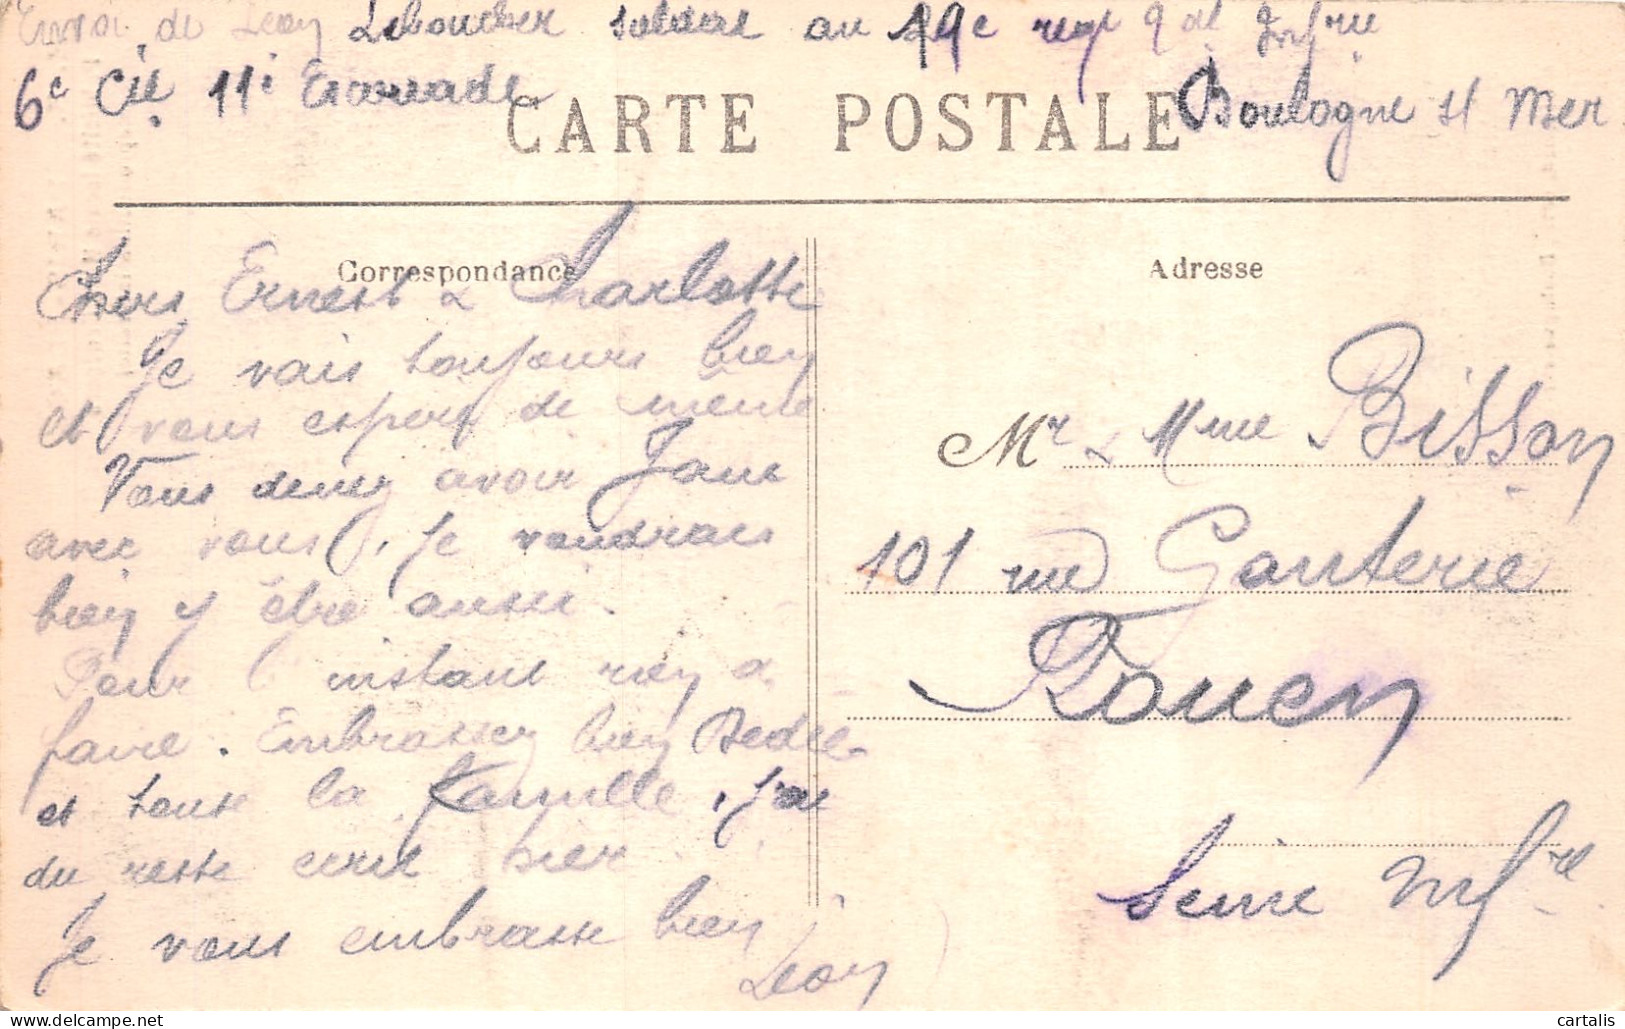 Envoi de Leon Leboucher soldat au
6e Cie 11e Escouade
CARTE POSTALE
Boulogne s/ Mer
Correspondance
Adresse
Chers Ernest & Charlotte
Je vais toujours bien
et vous espere de meme
Vous devez avoir Jane
avec vous, je voudrais
bien y être aussi.
Pour l'instant rien a
faire. Embrassez bien
et toute la famille, j'ai
du reste ecrit hier.
Je vous embrasse bien
Leon
Mr & Mme Bisson
101 rue Ganterie
Rouen
Seine Infre
cartalis